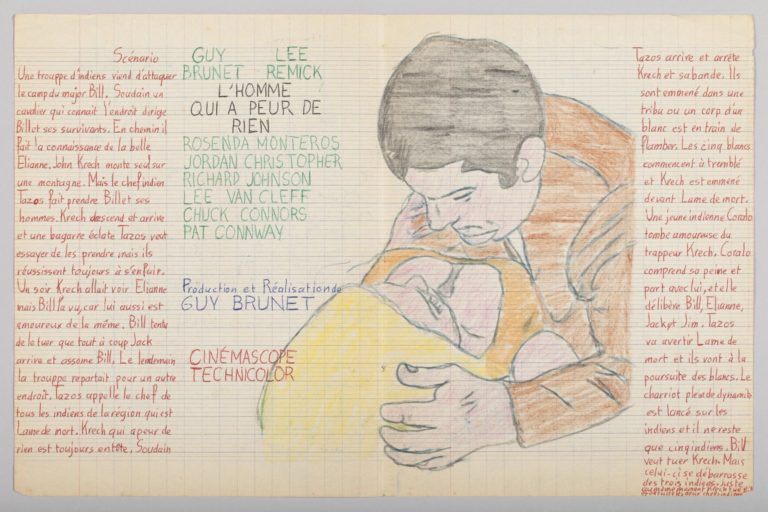 Scénario
Une trouppe d'indiens viend d'attaquer
le camp du major Bill. Soudain un
cavalier qui connait l'endroit dirige
Bill et ses survivants. En chemin il
fait la connaissance de la belle
Elianne. John Krech monte seul sur
une montagne. Mais le chef indien
Tazos fait prendre Bill et ses
hommes. Krech descend et arrive
et une bagarre éclate Tazos veut
essayer de les prendre mais ils
réussissent toujours à s'enfuir.
Un soir Krech allait voir Elianne
mais Bill l'a vu, car lui aussi est
amoureux de la même. Bill tenta
de le tuer que tout à coup Jack
arrive et assome Bill. Le lendemain
la trouppe repartait pour un autre
endroit. Tazos appelle le chef de
tous les indiens de la région qui est
Lame de mort. Krech qui a peur de
rien est toujours en tête. Soudain
GUY LEE
BRUNET REMICK
L'HOMME
QUI A PEUR DE
RIEN
ROSENDA MONTEROS
JORDAN CHRISTOPHER
RICHARD JOHNSON
LEE VAN CLEFF
CHUCK CONNORS
PAT CONNWAY
Production et Réalisation de
GUY BRUNET
CINÉMASCOPE
TECHNICOLOR
Tazos arrive et arrête
Krech et sa bande. Ils
sont emmené dans une
tribu ou un corp d'un
blanc est en train de
flamber. Les cinq blancs
commencent à tremblé
et Krech est emmené
devant Lame de mort.
Une jeune indienne Coralo
tombe amoureuse du
trappeur Krech. Coralo
comprend sa peine et
part avec lui, et elle
délibère Bill, Elianne,
Jack et Jim. Tazos
va avertir Lame de
mort et ils vont à la
poursuite des blancs. Le
charriot plein de dynamite
est lancé sur les
indiens et il ne reste
que cinq indiens. Bill
veut tuer Krech. Mais
celui-ci se débarrasse
des trois indiens. Juste